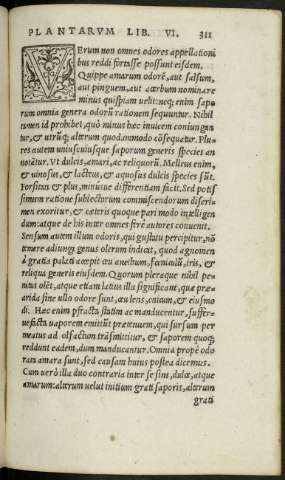 PLANTARVM LIB. VI. 311
VErum non omnes odores appellationi
bus reddi fortasse possunt eisdem.
Quippe amarum odorē, aut salsum,
aut pinguem, aut acerbum nominare
minus quispiam uelit: neq; enim sapo
rum omnia genera odorū rationem sequuntur. Nihil
tamen id prohibet, quò minus hæc inuicem coniungan
tur, & utrūq; alterum quodammodo cōsequatur. Plu
res autem uniuscuiusque saporum generis species an
notātur. Vt dulcis, amari, ac reliquorū. Melleus enim,
& uinosus, & lacteus, & aquosus dulcis species sūt.
Forsitan & plus, minusue differentiam facit. Sed potis
simum ratione subiectorum commiscendorum discri
men exoritur, & cæteris quoque pari modo intelligen
dum: atque de his inter omnes ferè autores conuenit.
Sensum autem illum odoris, qui gustatu percipitur, nō
temere aditungi genus olerum indicat, quod agnomen
à gratia palati accepit ceu anethum, fœniculū, iris, &
reliqua generis eiusdem. Quorum pleraque nihil pe
nitus olēt, atque etiam latius illa significant, quæ præ
arida sine ullo odore sunt, ceu lens, cnicum, & eiusmo
di. Hæc enim pfracta statim ac manducentur, suffer-
uefacta uaporem emittūt prætenuem, qui sursum per
meatus ad olfactum trāsmittitur, & saporem quoq;
reddunt eadem, dum manducantur. Omnia propè odo
rata amara sunt, sed causam huius postea dicemus.
Cum uerò illa duo contraria inter se sint, dulce, atque
amarum: alterum uelut initium grati saporis, alterum
grati